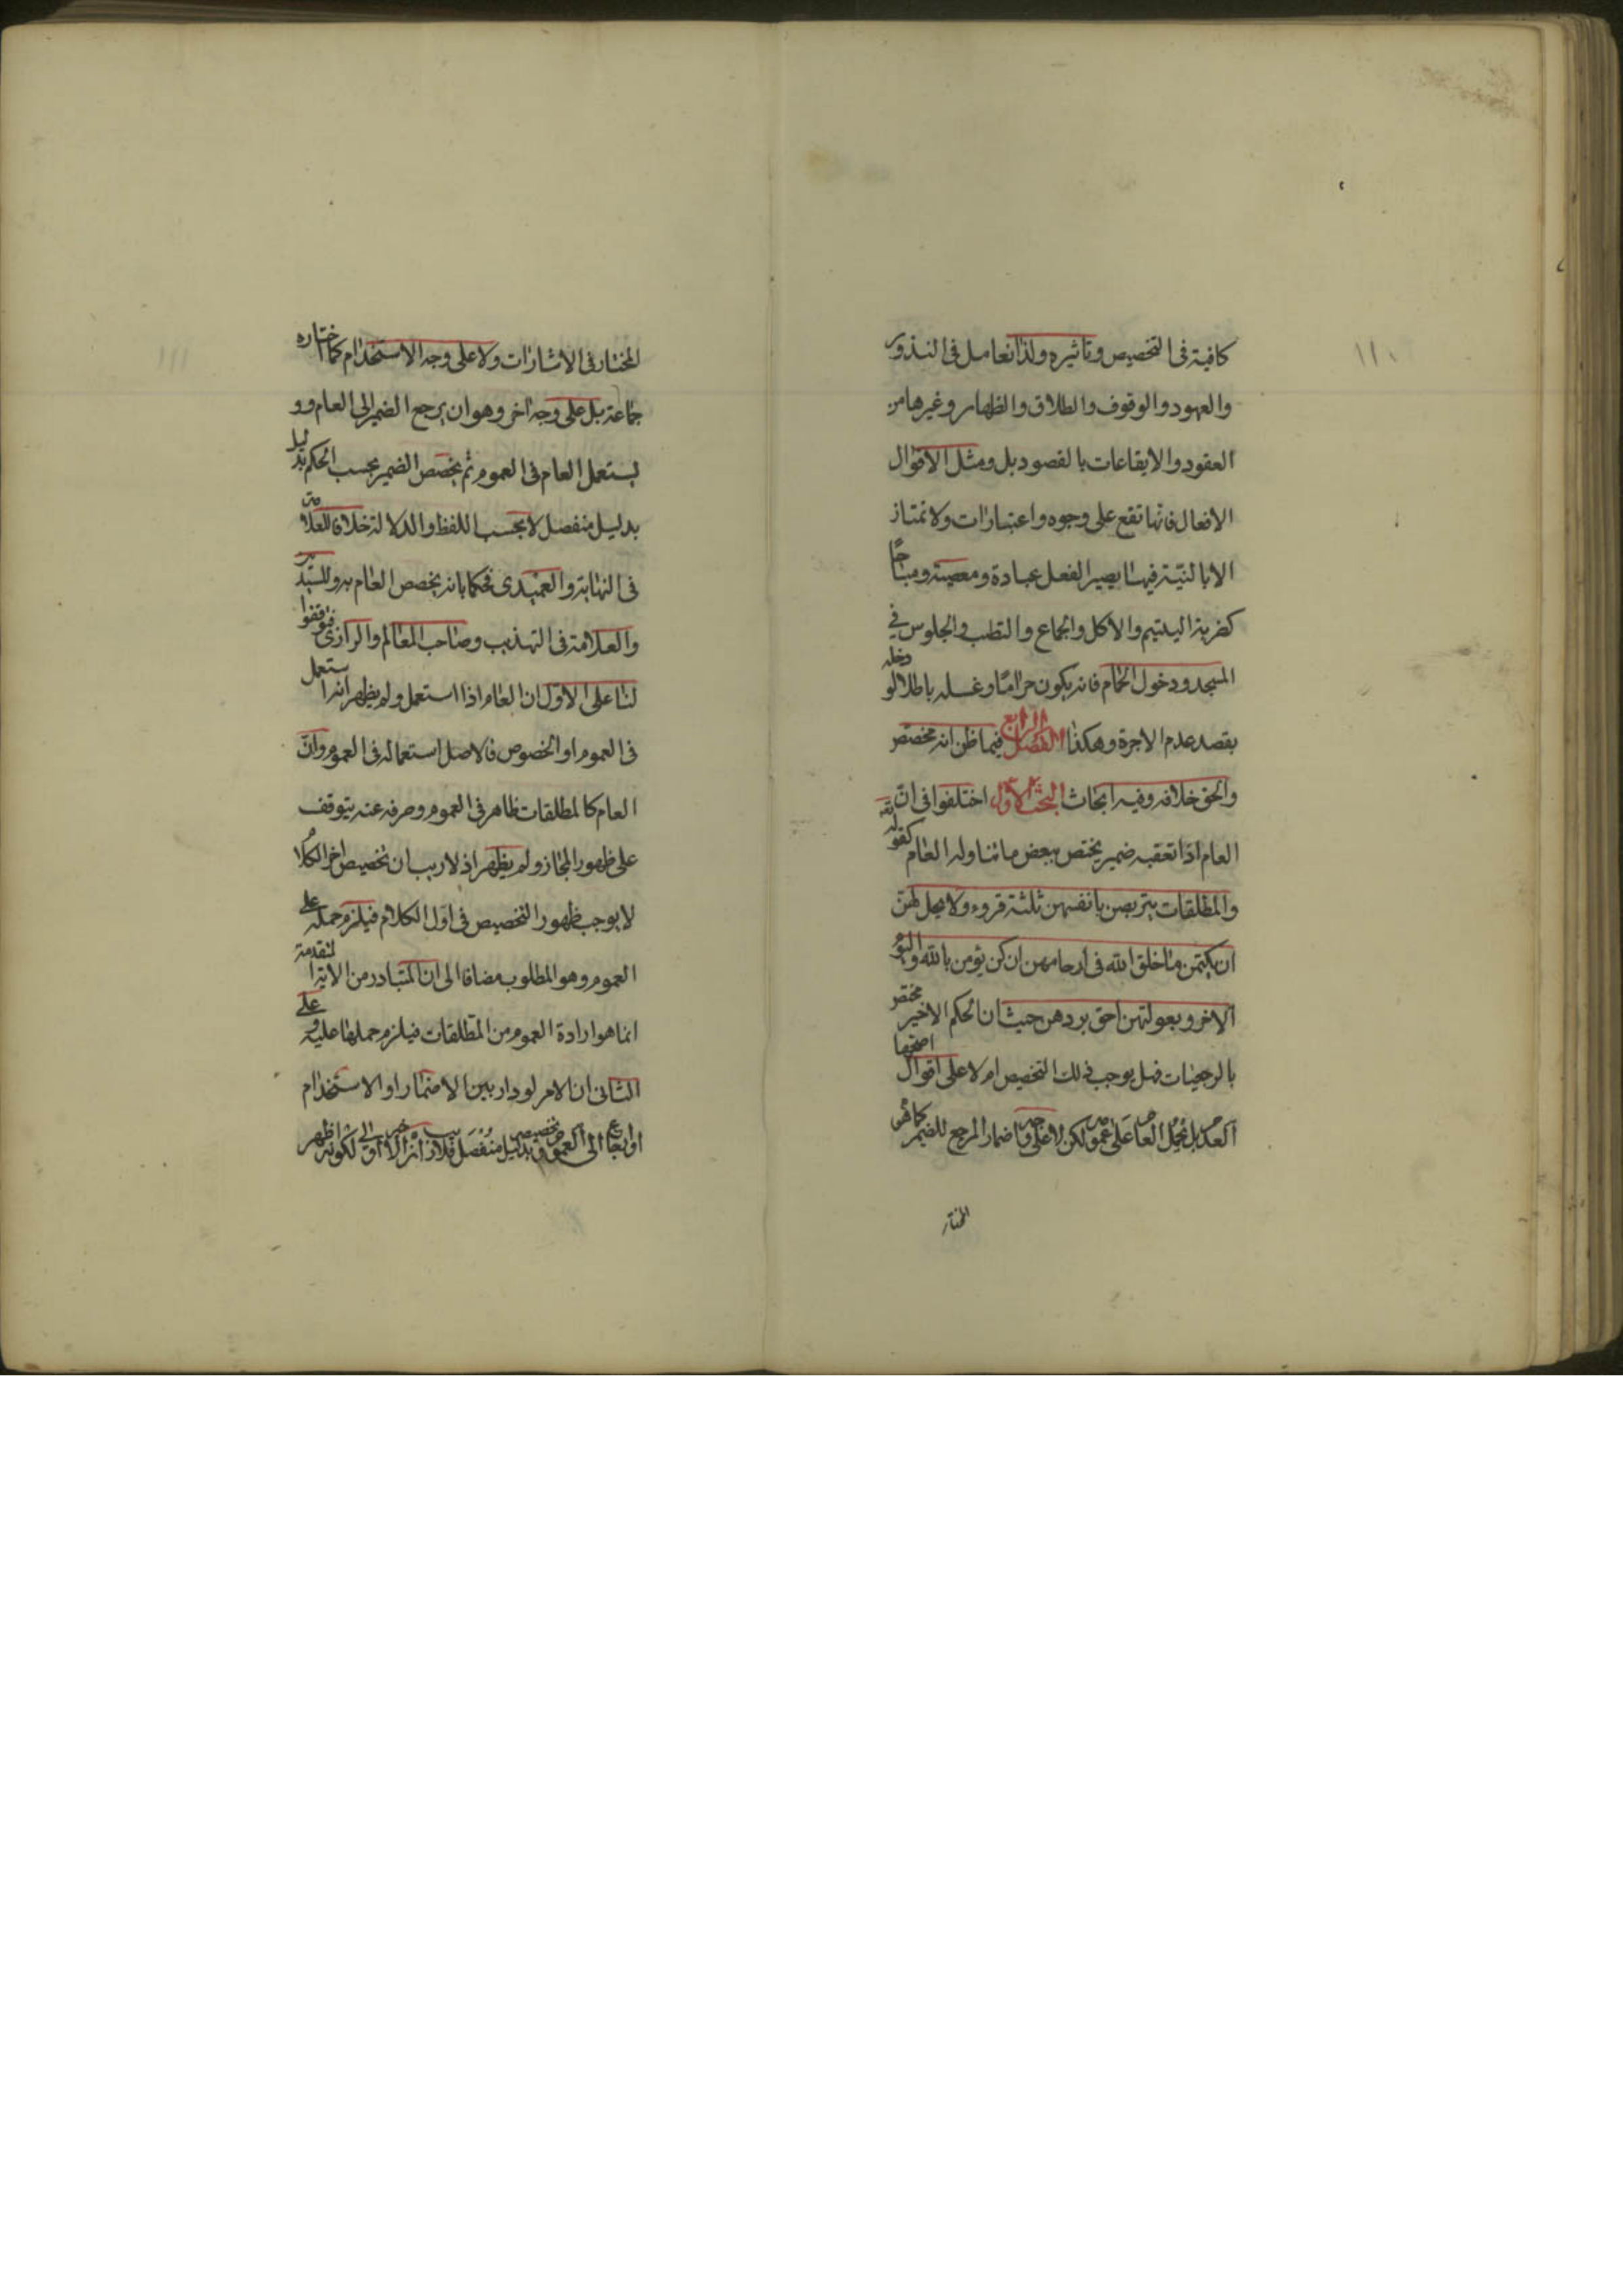 ١١٠
كافية فى التخصيص وتاثيره ولذا نعامل فى النذور
والعهود والوقوف والطلاق والظهار وغيرها من
العقود والايقاعات بالقصود بل ومثل الاقوال
الافعال فانها تقع على وجوه واعتبارات ولا تمتاز
الا بالنية فيها يصير الفعل عبادة ومعصية ومباحًا
كضربة اليتيم والاكل والجماع والتطيب والجلوس في
المسجد ودخول الحمام فانه يكون حرامًا وغسله باطلا لو دخله
بقصد عدم الاجرة وهكذا الفصل الرابع فيما ظن انه مخصص
والحق خلافه وفيه ابحاث البحث الاول اختلفوا فى انّ
العام اذا تعقبه ضمير يختص ببعض ما تناوله العام كقوله تعه
والمطلقات يتربصن بانفسهن ثلثة قروء ولا يحل لهنّ
ان يكتمن ما خلق الله فى ارحامهن ان كن يؤمن بالله واليوم
الاخر وبعولتهن احق بردهن حيث ان الحكم الاخير مختص
بالرجعيات فهل يوجب ذلك التخصيص ام لا على اقوال اصحها
العدم بل يحمل العام على عمومه لكن لا على وجه اضمار المرجع للضمير كما هو
المختار
١١١
المختار فى الاشارات ولا على وجه الاستخدام كما اختاره
جماعة بل على وجه اخر وهو ان يرجع الضمير الى العام و و
يستعمل العام فى العموم ثم يخصص الضمير بحسب الحكم بدليل
بدليل منفصل لا بحسب اللفظ والدلالة خلافا للعلامة
فى النهاية والعميدى فحكما بانه يخصص العام به وللسيد
والعلامة فى التهذيب وصاحب المعالم والرازى فتوقفوا
لنا على الاول ان العام اذا استعمل ولم يظهر انه استعمل
فى العموم او الخصوص فالاصل استعماله فى العموم وانّ
العام كالمطلقات ظاهر فى العموم وصرفه عنه يتوقف
على ظهور المجاز ولم يظهر اذ لا ريب ان تخصيص اخر الكلام
لا يوجب ظهور التخصيص فى اول الكلام فيلزم حمله على
العموم وهو المطلوب مضافا الى ان المتبادر من الاية المتقدمة
انما هو ارادة العموم من المطلقات فيلزم حملها عليه وعلى
الثانى ان الامر لو دار بين الاضمار او الاستخدام
او ارجاع الى العموم وتخصيصه بدليل منفصل فلا ريب ان الاخير اولى لكونه اظهر